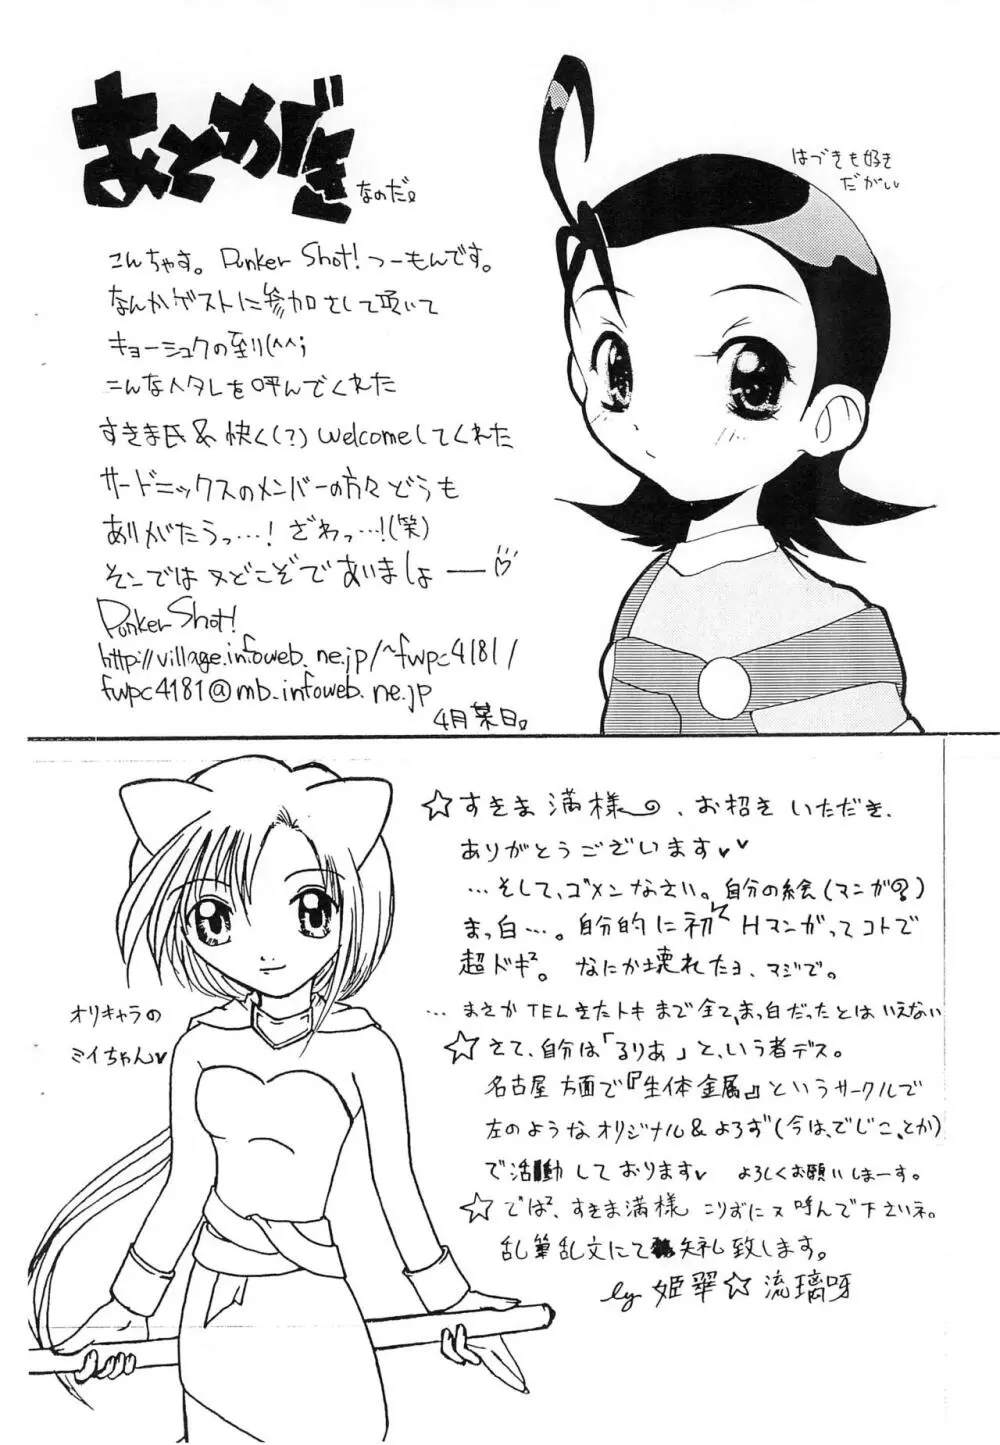 あとがき
なのだ。
はづきも好き
だがい
こんちゃす。Dunker Shot!つーもんです。
なんかゲストに参加さして頂いて
キョーシュクの至り(^^;
こんなヘタレを呼んでくれた
すきま氏&快く(?)welcomeしてくれた
サードニックスのメンバーの方々どうも
ありがたうっ…!ざわっ…!(笑)
そんでは又どこぞであいましょー
Dunker Shot!
http://village.infoweb.ne.jp/~fwpc4181/
fwpc4181@mb.infoweb.ne.jp
4月某日。
オリキャラの
ミイちゃん♥
☆すきま満様、お招きいただき、
ありがとうございます♥♥
…そして、ゴメンなさい。自分の絵(マンガ?)
まっ白…。自分的に初Hマンガってコトで
超ドキ²。なにか壊れたヨ、マジで。
…まさかTELきたトキまで全てまっ白だったとはいえない
☆さて、自分は「るりあ」と、いう者デス。
名古屋方面で『生体金属』というサークルで
左のようなオリジナル&よろず(今は、でじこ、とか)
で活動しております♥ よろしくお願いしまーす。
☆では²、すきま満様 こりずに又呼んで下さいネ。
乱筆乱文にて失礼致します。
by 姫翠☆流璃呀